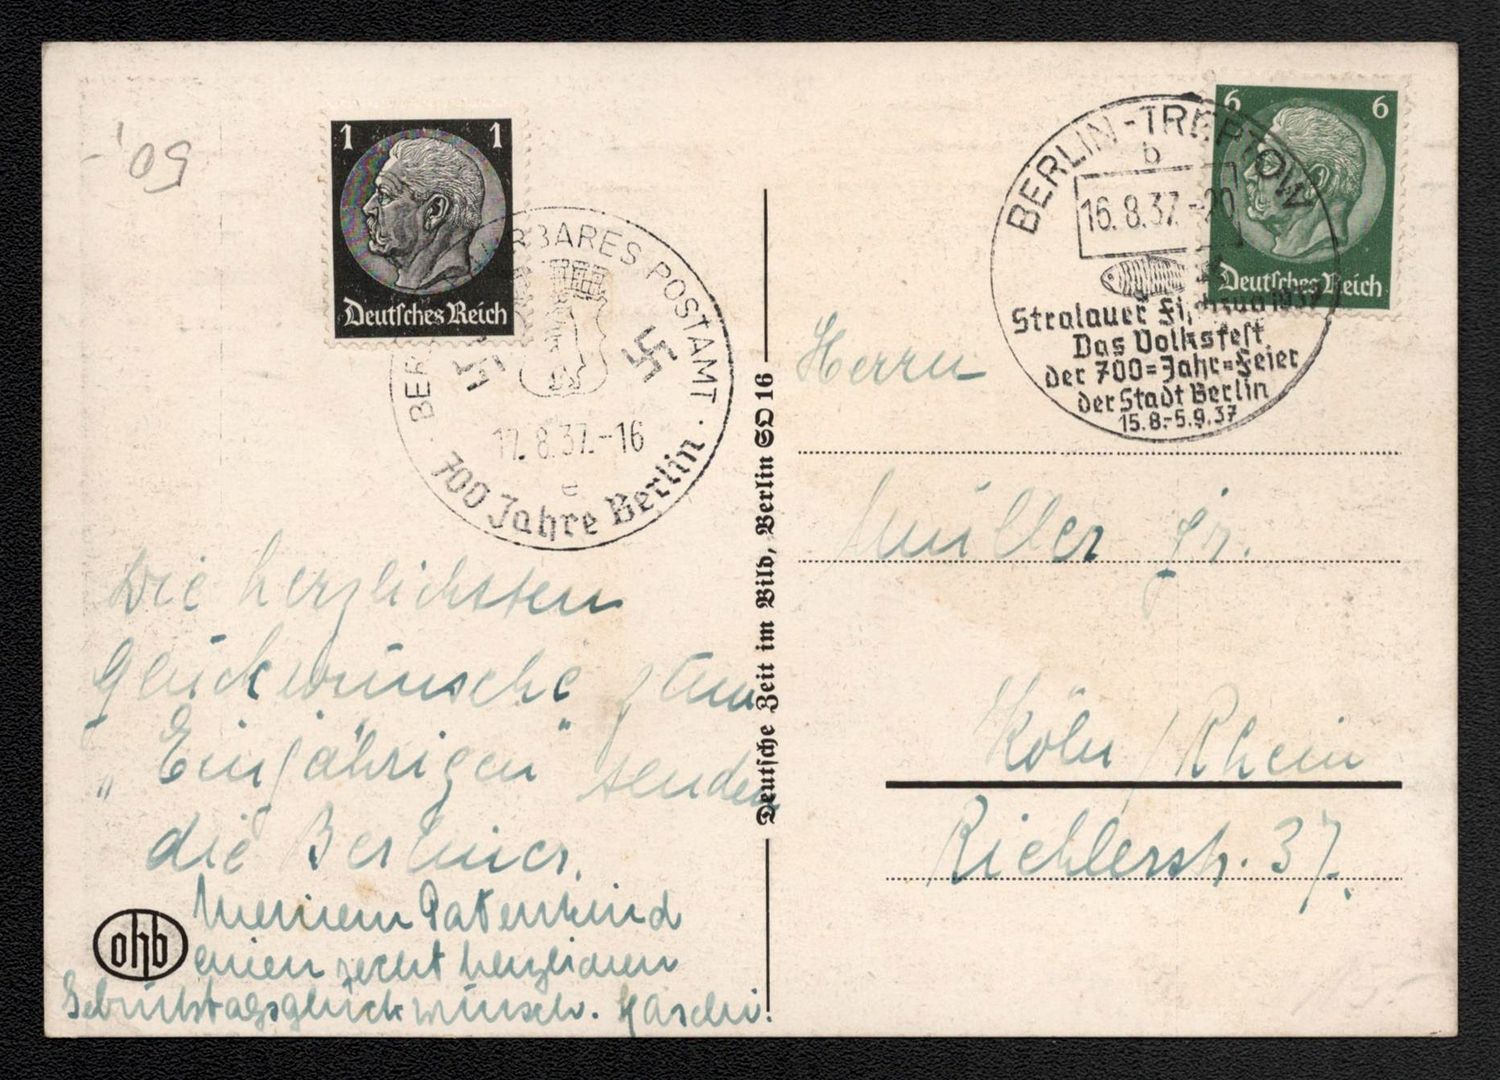 50,-
1 1
Deutsches Reich
FAHRBARES POSTAMT
17.8.37.-16
e
700 Jahre Berlin
6 6
Deutsches Reich
BERLIN-TREPTOW
b
16.8.37.-20
Stralauer Fischzug 1937
Das Volksfest
der 700=Jahr=Feier
der Stadt Berlin
15.8.-5.9.37
Die herzlichsten
Glückwünsche zum
"Einjährigen" senden
die Berliner.
Meinem Patenkind
einen recht herzlichen
Geburtstagsglückwunsch.
ohb
Deutsche Zeit im Bild, Berlin SO 16
Herrn
Müller jr.
Köln/Rhein
Riehlerstr. 37.